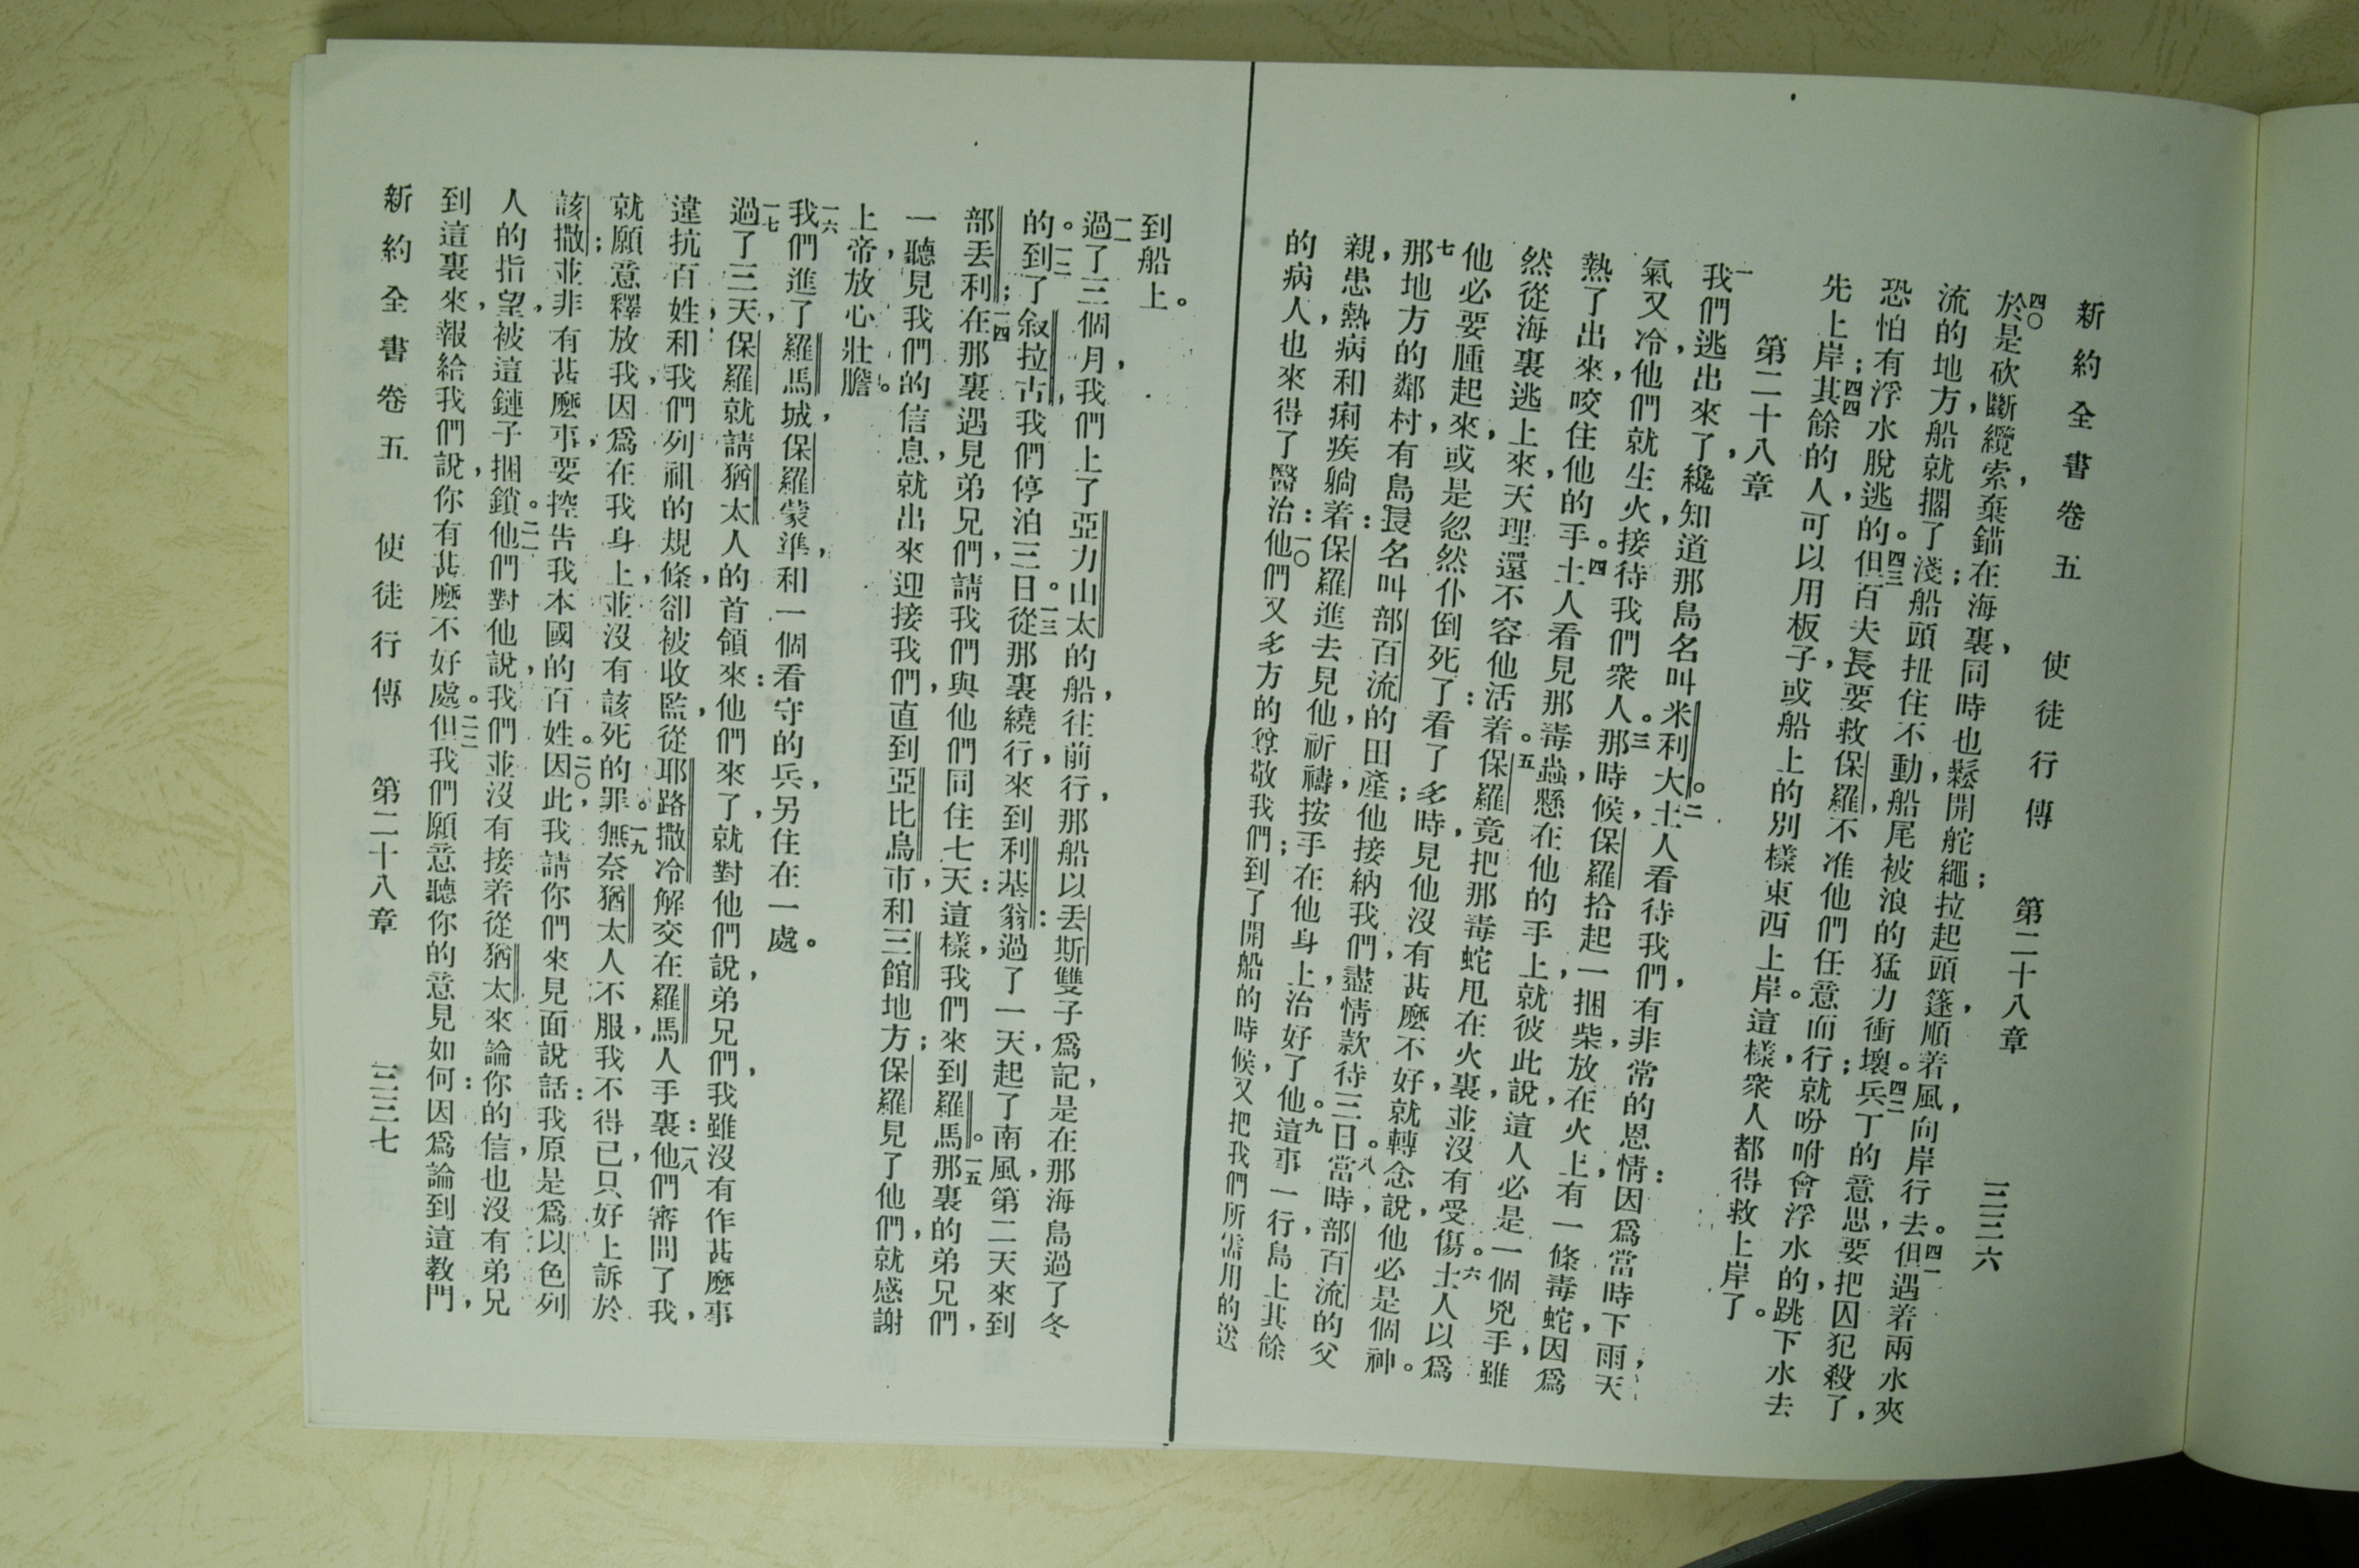 新約全書卷五 使徒行傳 第二十八章 三三六
四〇於是砍斷纜索，棄錨在海裏，同時也鬆開舵繩；拉起頭篷，順着風，向岸行去。四一但遇着兩水夾
流的地方，船就擱了淺；船頭扯住不動，船尾被浪的猛力衝壞。四二兵丁的意思，要把囚犯殺了，
恐怕有浮水脫逃的。四三但百夫長要救保羅，不准他們任意而行；就吩咐會浮水的，跳下水去
先上岸；四四其餘的人，可以用板子，或船上的別樣東西上岸。這樣，衆人都得救上岸了。
第二十八章
一我們逃出來了，纔知道那島名叫米利大。二土人看待我們，有非常的恩情：因爲當時下雨，天
氣又冷，他們就生火，接待我們衆人。三那時候，保羅拾起一捆柴，放在火上，有一條毒蛇，因爲
熱了出來，咬住他的手。四土人看見那毒蟲，懸在他的手上，就彼此說，這人必是一個兇手，雖
然從海裏逃上來，天理還不容他活着。五保羅竟把那毒蛇甩在火裏，並沒有受傷。六土人以爲
他必要腫起來，或是忽然仆倒死了：看了多時，見他沒有甚麼不好，就轉念，說他必是個神。
七那地方的鄰村，有島長名叫部百流的田產；他接納我們，盡情款待三日。八當時，部百流的父
親，患熱病和痢疾躺着：保羅進去見他，祈禱，按手在他身上，治好了他。九這事一行，島上其餘
的病人，也來得了醫治：一〇他們又多方的尊敬我們；到了開船的時候，又把我們所需用的送
到船上。
一一過了三個月，我們上了亞力山太的船，往前行，那船以丟斯雙子爲記，是在那海島過了冬
的。一二到了叙拉古，我們停泊三日。一三從那裏繞行，來到利基翁：過了一天，起了南風，第二天來到
部丟利；一四在那裏遇見弟兄們，請我們與他們同住七天：這樣，我們來到羅馬。一五那裏的弟兄們，
一聽見我們的信息，就出來迎接我們，直到亞比烏市，和三館地方；保羅見了他們，就感謝
上帝，放心壯膽。
一六我們進了羅馬城，保羅蒙準，和一個看守的兵，另住在一處。
一七過了三天，保羅就請猶太人的首領來：他們來了，就對他們說，弟兄們，我雖沒有作甚麼事，
違抗百姓，和我們列祖的規條，卻被收監，從耶路撒冷解交在羅馬人手裏：一八他們審問了我，
就願意釋放我，因爲在我身上，並沒有該死的罪。一九無奈猶太人不服，我不得已，只好上訴於
該撒；並非有甚麼事，要控告我本國的百姓。二〇因此，我請你們來見面說話：我原是爲以色列
人的指望，被這鏈子捆鎖。二一他們對他說，我們並沒有接着從猶太來論你的信，也沒有弟兄
到這裏來，報給我們說，你有甚麼不好處。二二但我們願意聽你的意見如何：因爲論到這教門，
新約全書卷五 使徒行傳 第二十八章 三三七